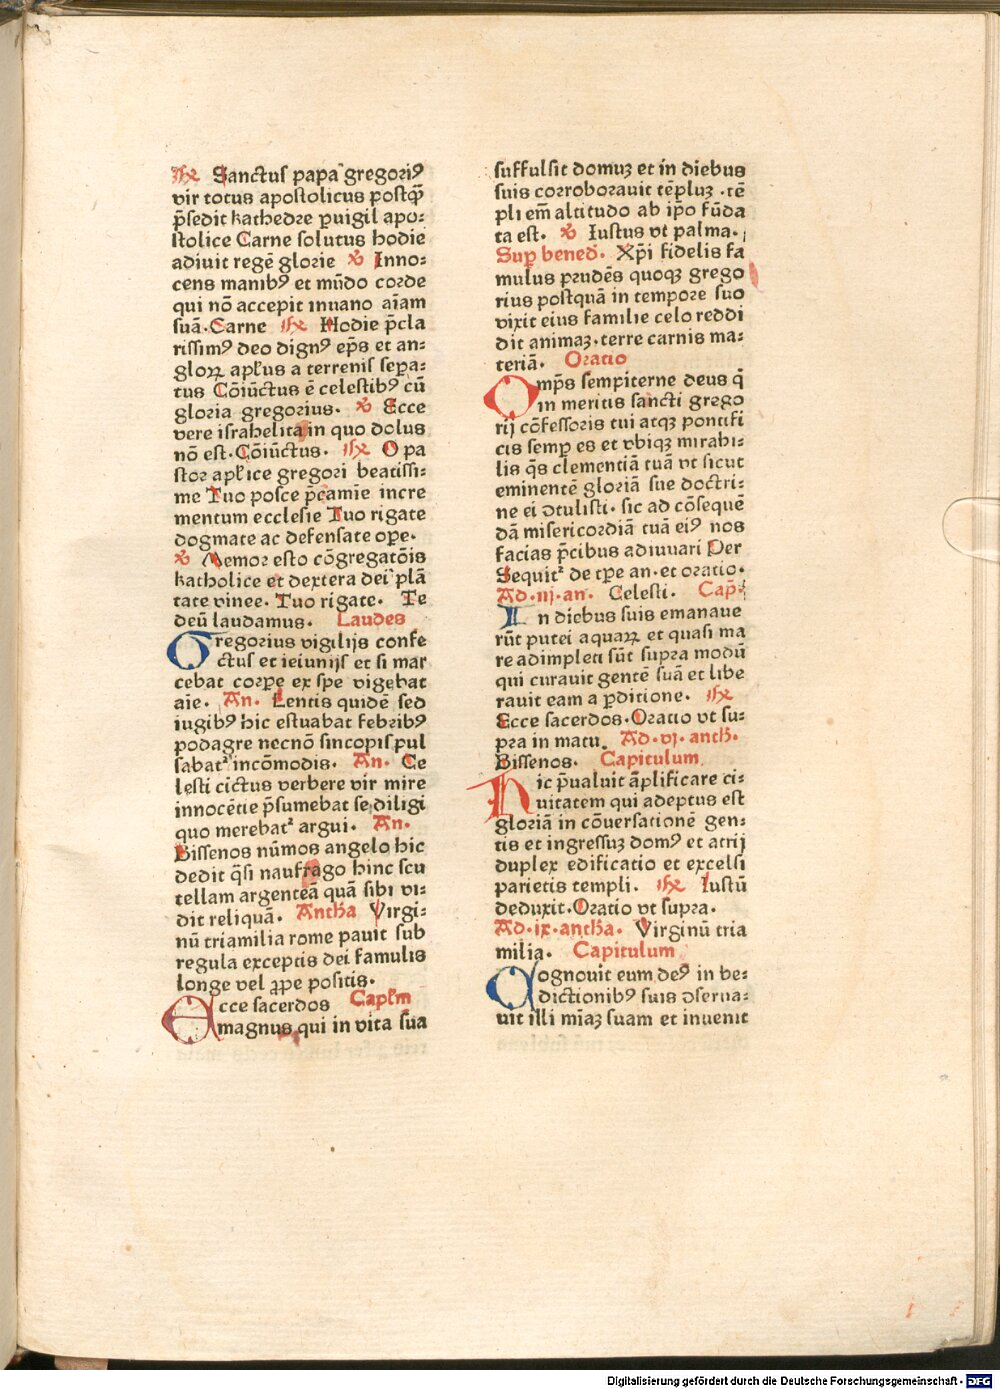 ℟ Sanctus papa gregoriꝰ
vir totus apostolicus postq̃
p̃sedit kathedre ꝑuigil apo⸗
stolice Carne solutus hodie
adiuit regẽ glorie ℣ Inno⸗
cens manibꝰ et mũdo corde
qui nõ accepit inuano aĩam
suã·Carne ℟ Hodie p̃cla
rissimꝰ deo dignꝰ ep̃s et an⸗
gloꝝ apl̃us a terrenis sepa⸗
tus Cõiũctus ẽ celestibꝰ cũ
gloria gregorius. ℣ Ecce
vere israhelita in quo dolus
nõ est·Cõiũctus. ℟ O pa
stor apl̃ice gregori beatissi⸗
me Tuo posce p̃camĩe incre
mentum ecclesie Tuo rigate
dogmate ac defensate oꝑe.
℣ Memor esto cõgregatõis
katholice et dextera dei plã
tate vinee. Tuo rigate. Te
deũ laudamus. Laudes
Gregorius vigilijs confe
ctus et ieiunijs et si mar
cebat corꝑe ex spe vigebat
aĩe. An. Lentis quidẽ sed
iugibꝰ hic estuabat febribꝰ
podagre necnõ sincopis pul
sabat᷑ incõmodis. An. Ce
lesti cictus verbere vir mire
innocẽtie p̃sumebat se diligi
quo merebat᷑ argui. An.
Bissenos nũmos angelo hic
dedit q̃si naufrago hinc scu
tellam argenteã quã sibi vi⸗
dit reliquã. Antha Virgi⸗
nũ triamilia rome pauit sub
regula exceptis dei famulis
longe vel ꝓpe positis.
Ecce sacerdos Capl̃m
magnus qui in vita sua
suffulsit domuꝫ et in diebus
suis corroborauit tẽpluꝫ ·tẽ
pli em̃ altitudo ab ip̃o fũda
ta est. ℣ Iustus vt palma.
Suꝑ bened̃. Xp̃i fidelis fa
mulus prudẽs quoqꝫ grego
rius postquã in tempore suo
vixit eius familie celo reddi
dit animaꝫ·terre carnis ma⸗
teriã. Oratio
Omp̃s sempiterne deus q̃
in meritis sancti grego
rij cõfessoris tui atqꝫ pontifi
cis semꝑ es et vbiqꝫ mirabi⸗
lis q̃s clementiã tuã vt sicut
eminentẽ gloriã sue doctri⸗
ne ei ↄtulisti· sic ad cõsequẽ
dã misericordiã tuã eiꝰ nos
facias p̃cibus adiuuari Per
Sequit᷑ de tp̃e an·et oratio·
Ad·iij·an. Celesti. Cap̃·
In diebus suis emanaue
rũt putei aquaꝝ et quasi ma
re adimpleti sũt supra modũ
qui curauit gentẽ suã et libe
rauit eam a ꝑditione. ℟
Ecce sacerdos·Oratio vt su⸗
pra in matu. Ad·vj·anth.
Bissenos. Capitulum
Hic p̃ualuit ãplificare ci⸗
uitatem qui adeptus est
gloriã in cõuersationẽ gen⸗
tis et ingressuꝫ domꝰ et atrij
duplex edificatio et excelsi
parietis templi. ℟ Iustũ
deduxit·Oratio vt supra.
Ad·ix·antha. Virginũ tria
milia. Capitulum
Cognouit eum deꝰ in be⸗
dictionibꝰ suis ↄserua⸗
uit illi mĩaꝫ suam et inuenit
Digitalisierung gefördert durch die Deutsche Forschungsgemeinschaft - DFG